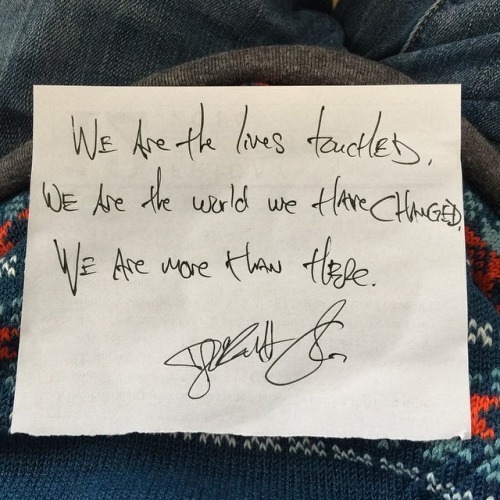 WE Are the lives touched.
WE Are the world we HAVE CHANGED.
WE Are more than HERE.